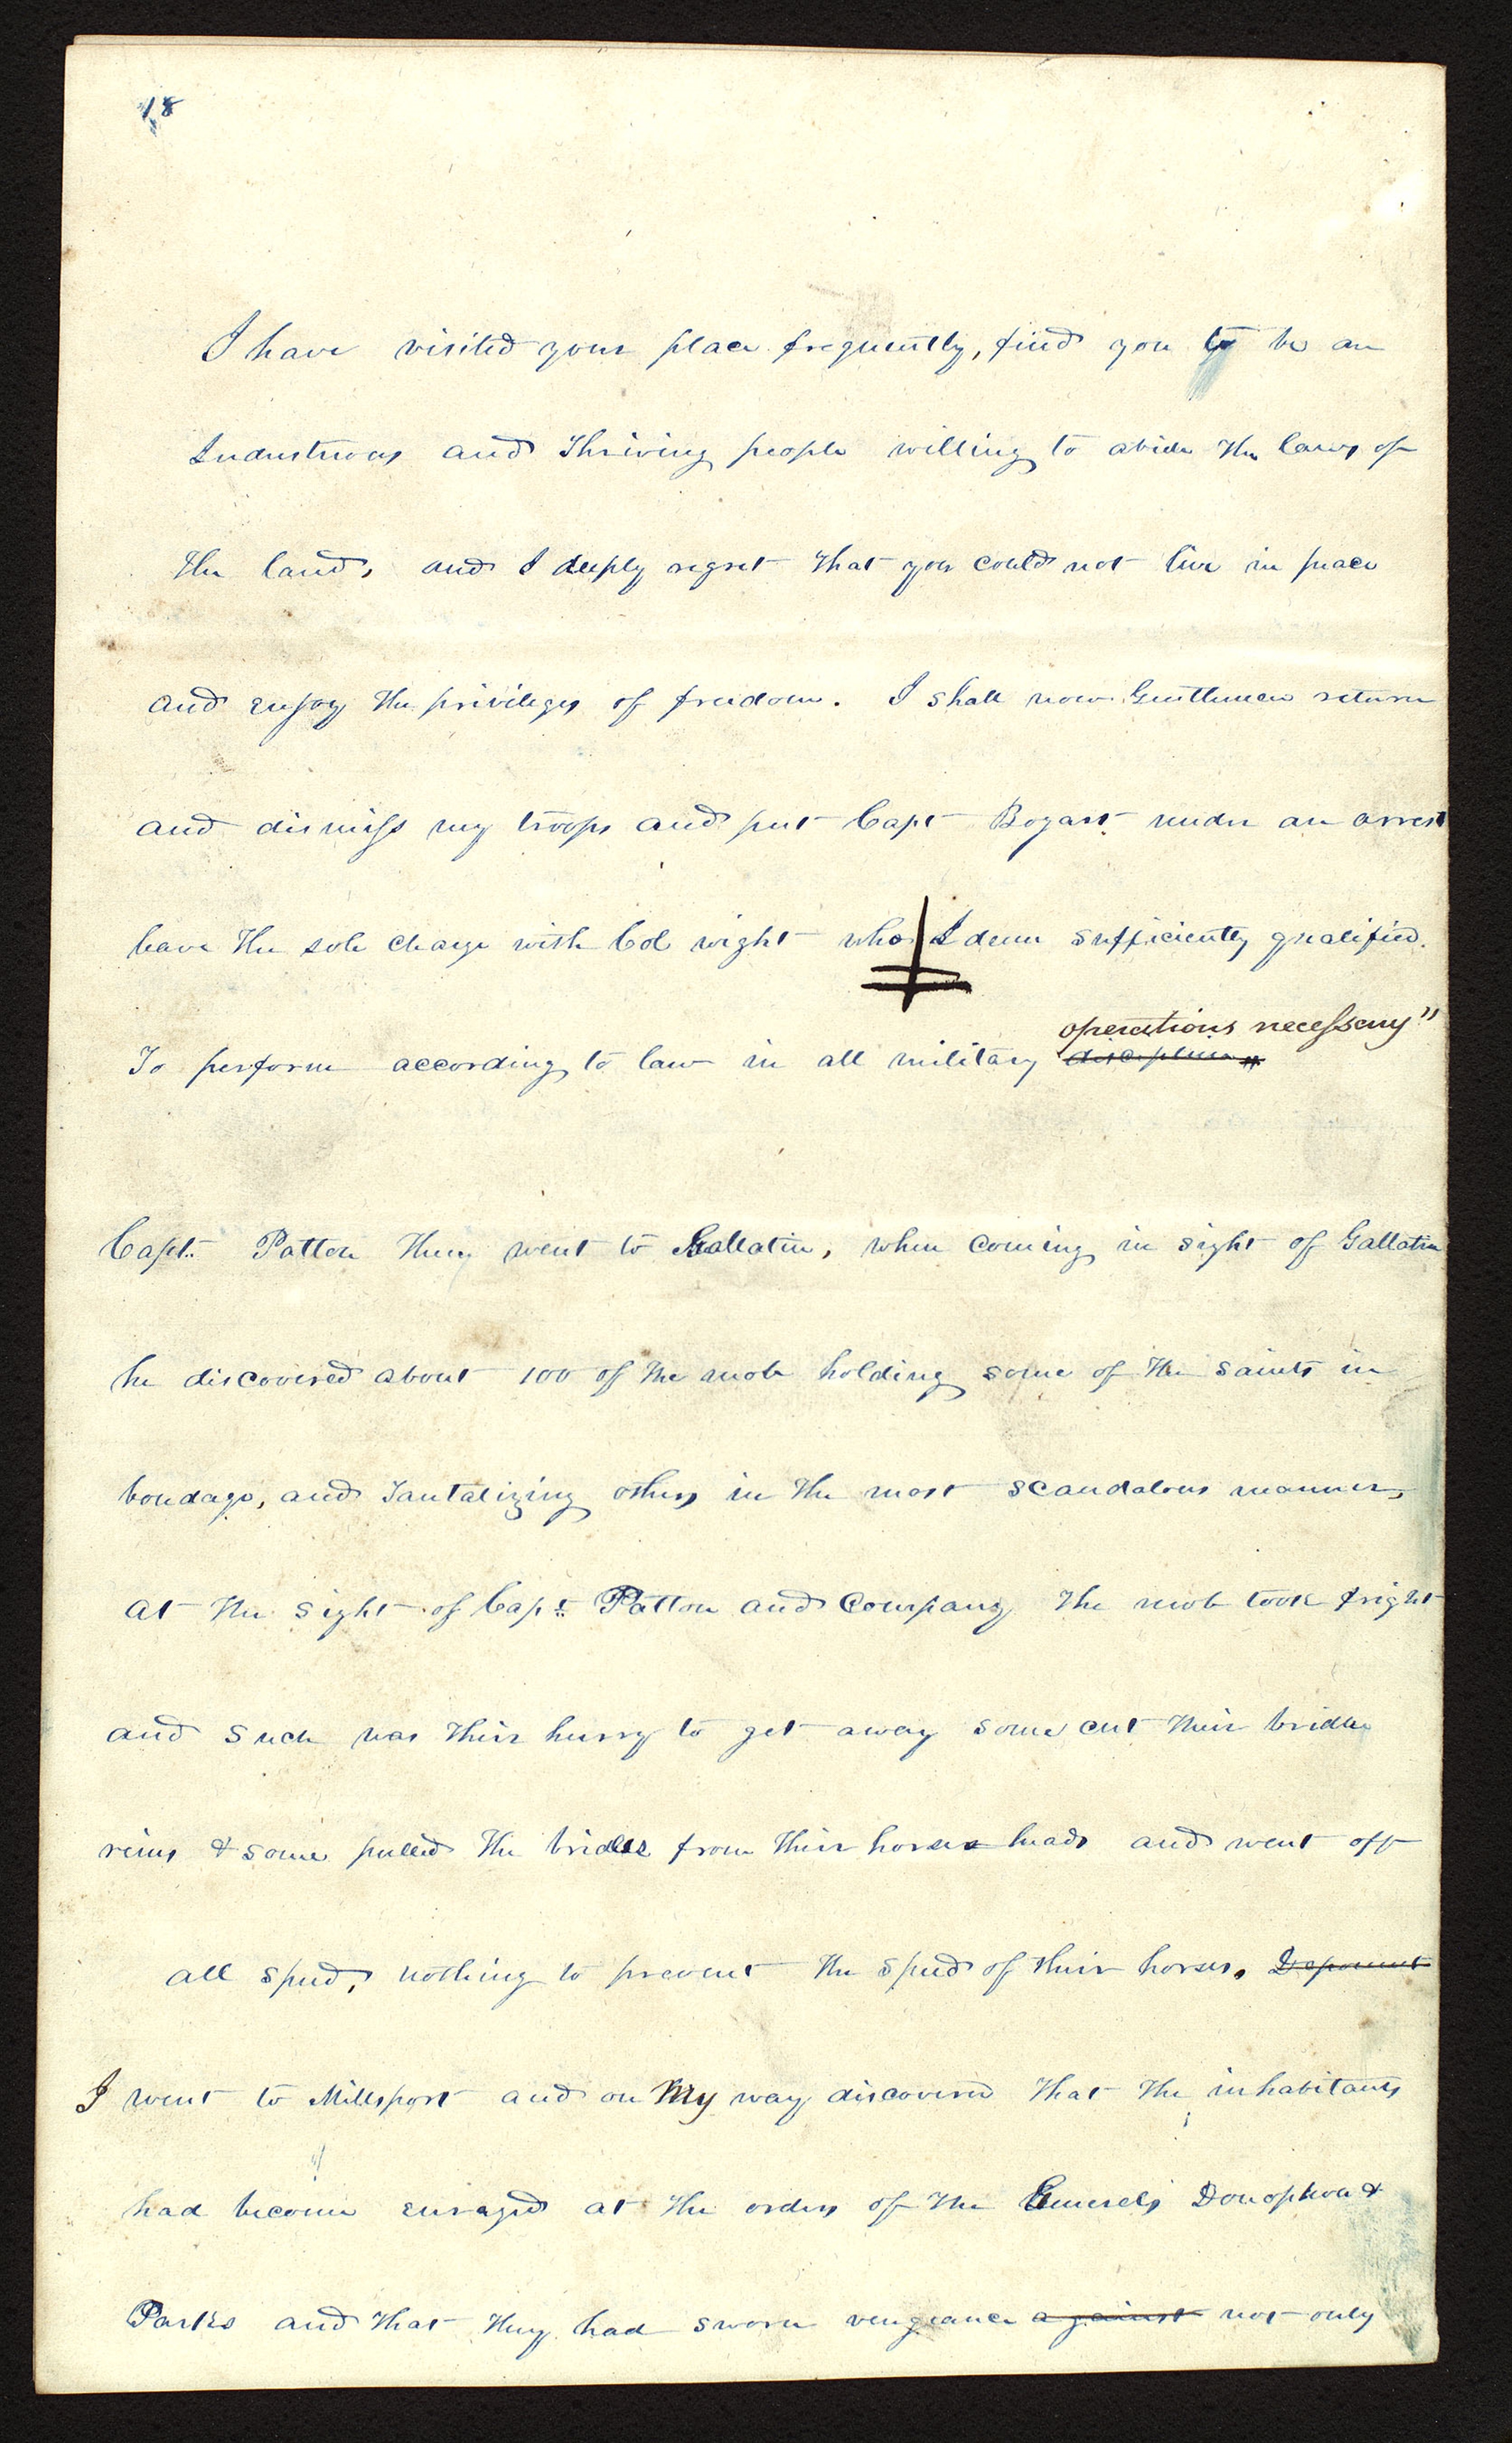 18
I have visited your place frequently, find you to be an
Industrious and Thriving people willing to abide the laws of
the land, and I deeply regret that you could not live in peace
and enjoy the privileges of freedom. I shall now Gentlemen return
and dismiss my troops and put Capt Bogart under an arrest
leave the sole charge with Col wight who I deem sufficiently qualified.
operations necessary"
To perform according to law in all military discipline"
Capt. Patten then went to Gallatin, when coming in sight of Gallatin
he discovered about 100 of the mob holding some of the saints in
bondage, and Tantalizing others in the most scandalous manner,
at the sight of Capt. Patton and Company the mob took fright
and such was their hurry to get away some cut their bridle
reins & some pulled the bridles from their horses heads and went off
all speed, nothing to prevent the speed of their horses. Deponent
I went to Millsport and on My way discovered that the inhabitants
had become enraged at the orders of the Generals Donophon &
Parks and that they had sworn vengeance against not only